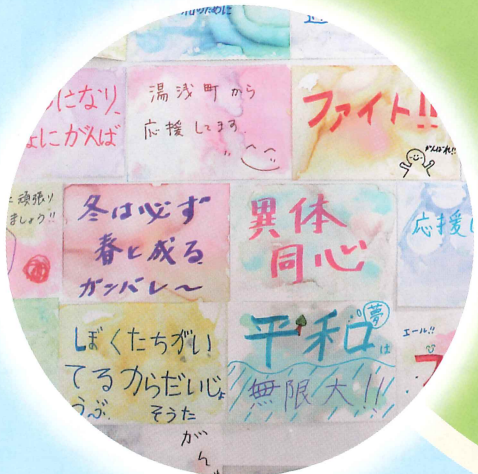 のために
になり、
よにがんば
湯浅町から
応援してます。
ファイト!!
がんばれ!!
に頑張り
ましょう!!
冬は必ず
春と成る
ガンバレ〜
異体
同心
応援し
ぼくたちがい
てるからだいじょ
うぶ。
そうた
平和は
夢
無限大!!!
エール!!
がん